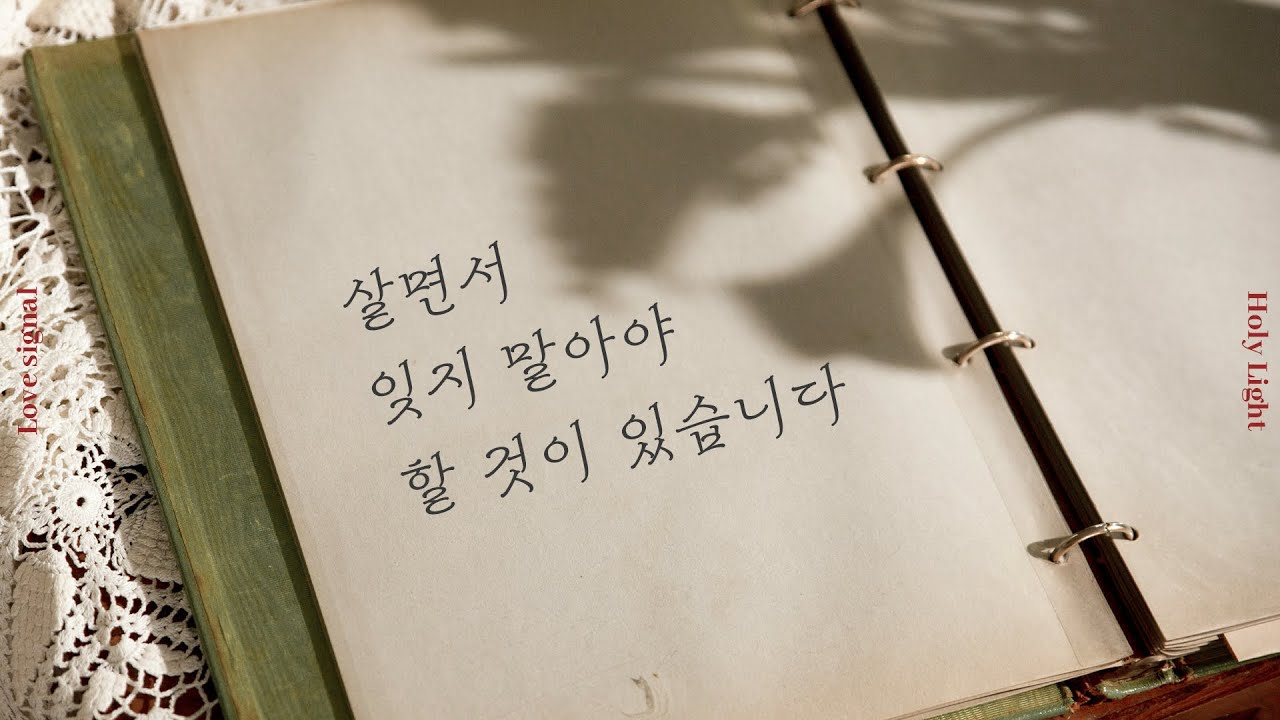 살면서
잊지 말아야
할 것이 있습니다
Love signal
Holy Light